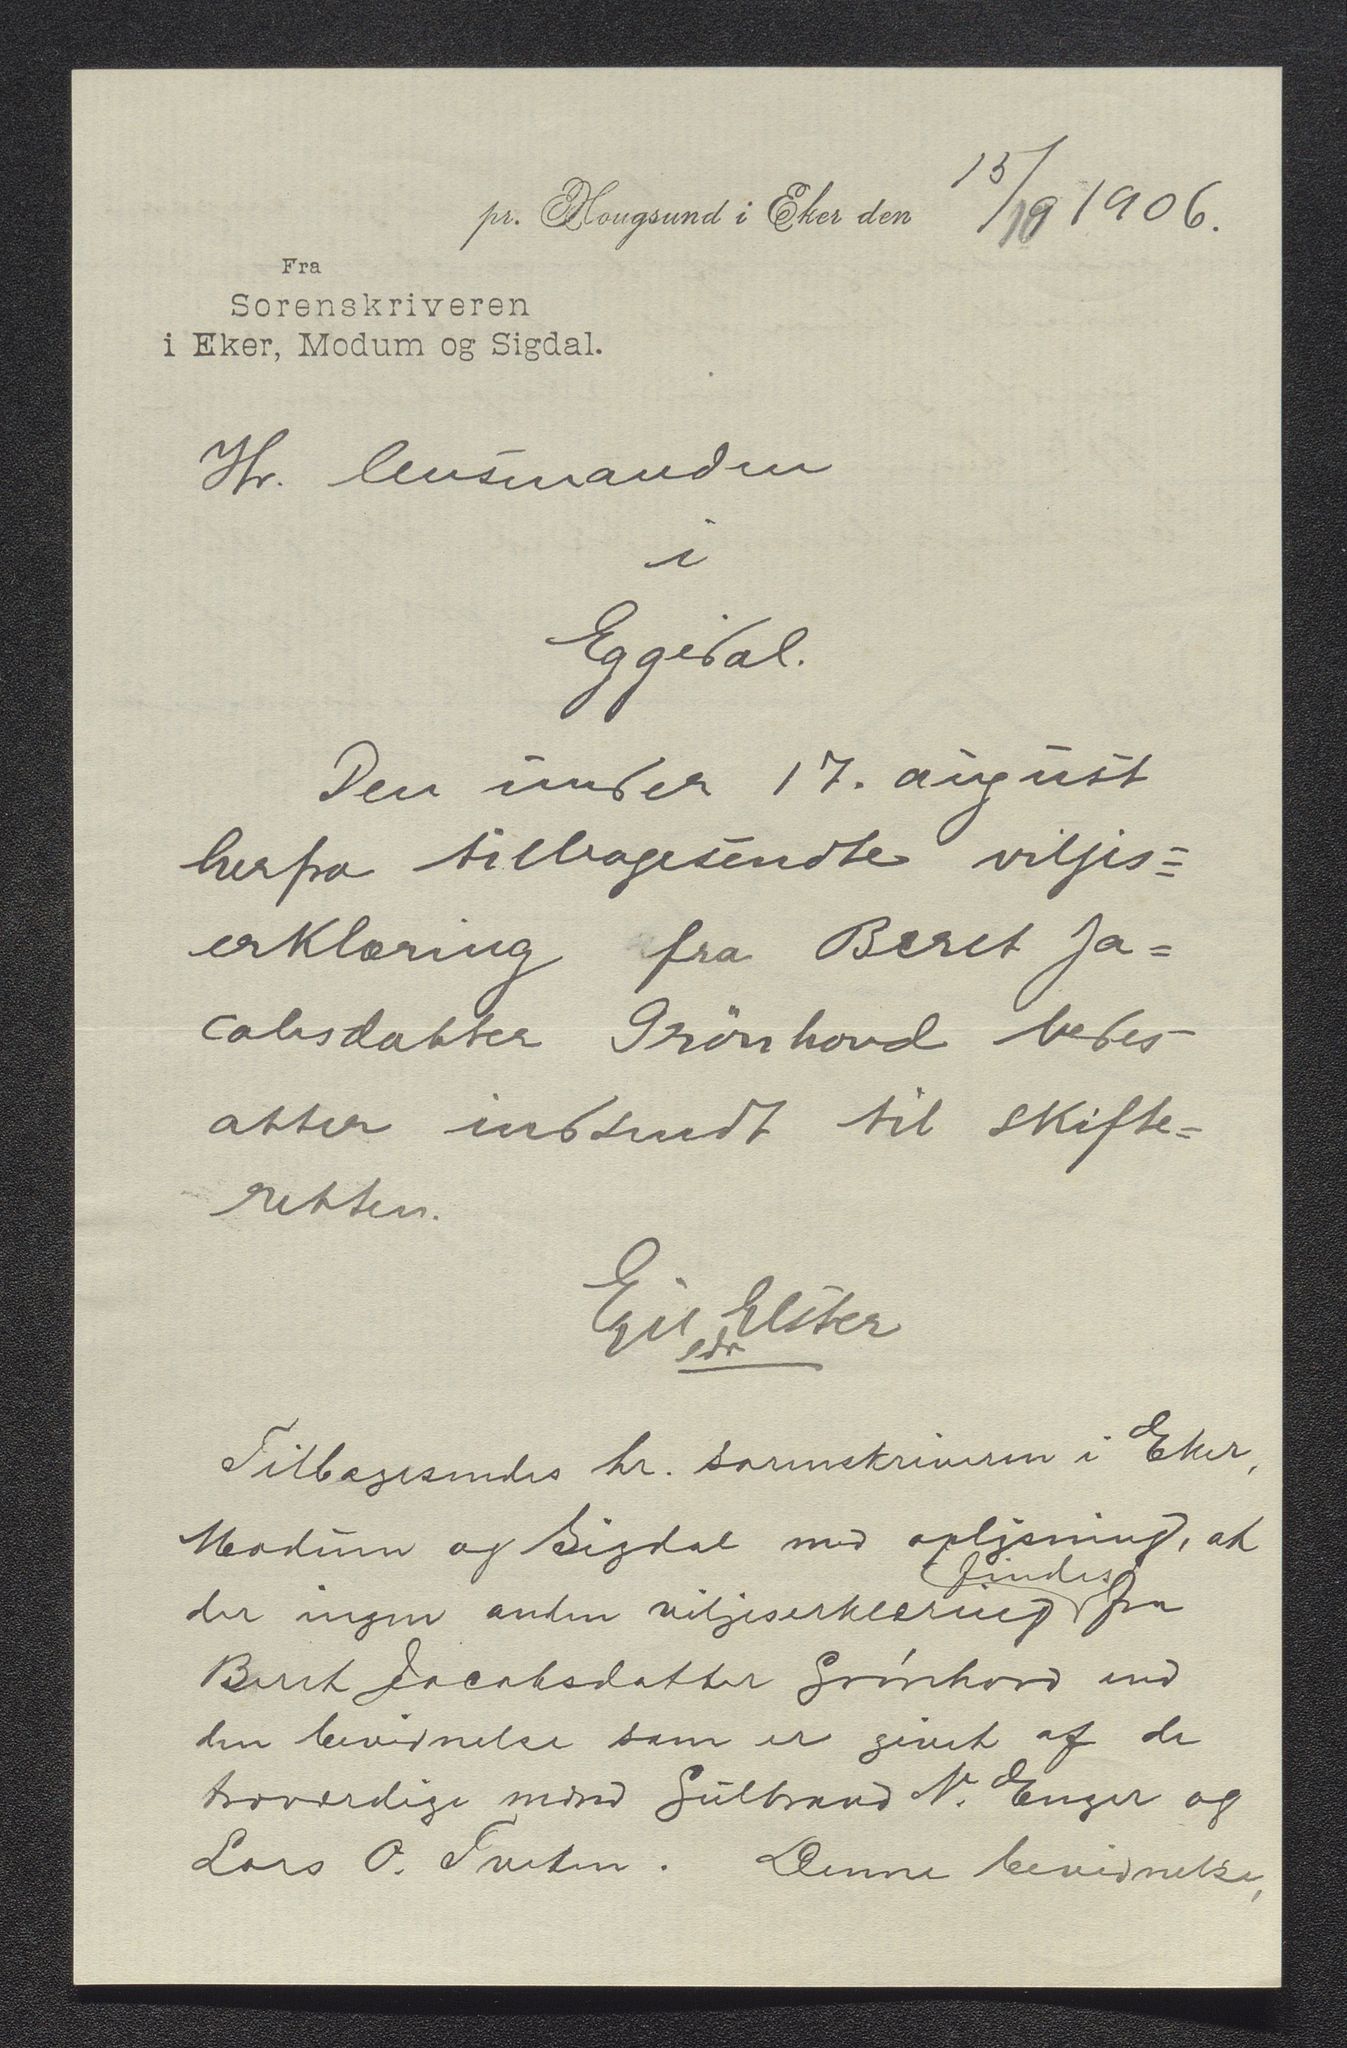 pr. Hougsund i Eker den 15/10 1906.
Fra
Sorenskriveren
i Eker, Modum og Sigdal.
Hr. lensmanden
i
Eggedal.
Den under 17. august
herfra tilbagesendte viljes=
erklæring fra Beret Ja=
cobsdatter Grönhovd bedes
atter indsendt til skifte=
retten.
Egil Elster
edr
Tilbagesendes hr. sorenskriveren i Eker,
Modum og Sigdal med oplysning, at
der ingen anden viljeserklæring findes fra
Beret Jacobsdatter Grönhovd end
den bevidnelse som er givet af de
troværdige mænd Gulbrand N. Enger og
Lars O. Tveten. Denne bevidnelse,